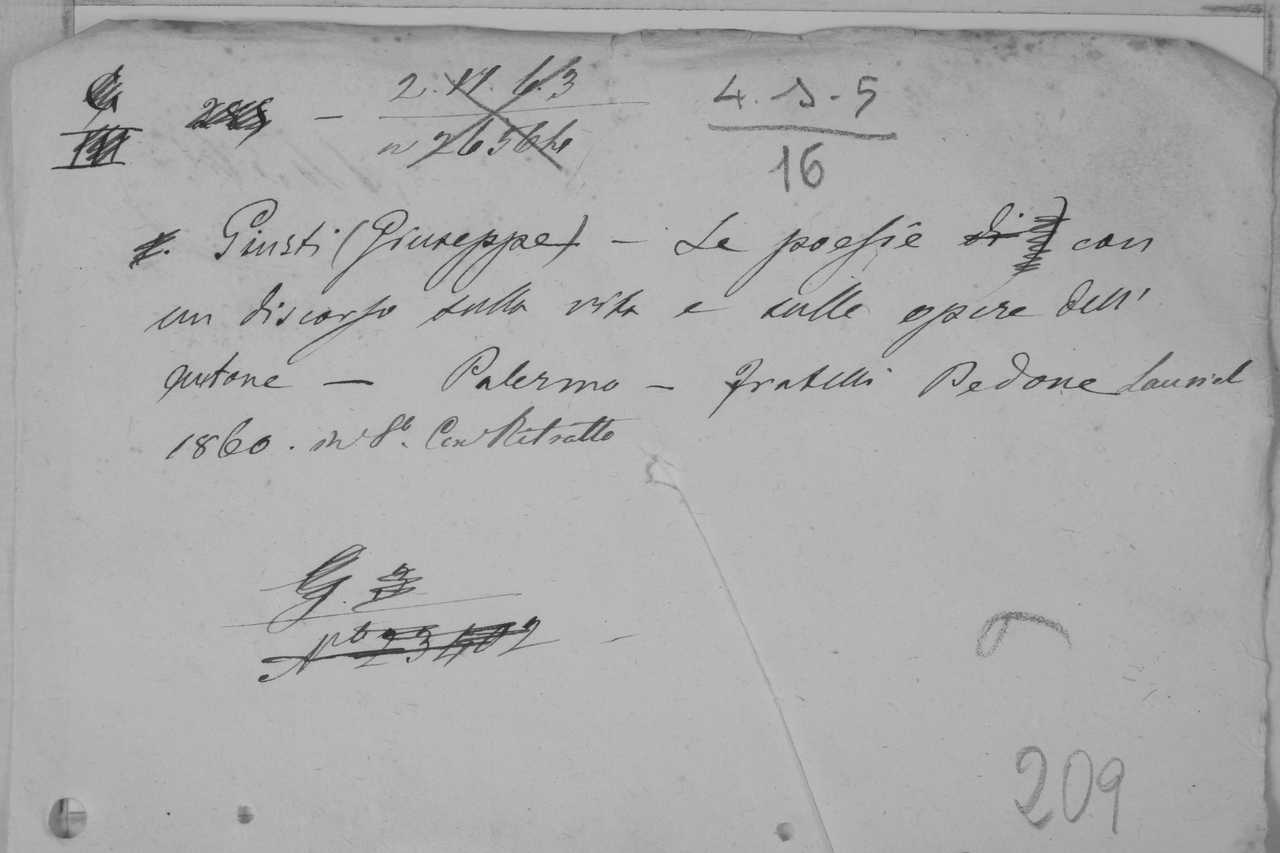 2. 17. 6.3
4. D. 5
16
Giusti (Giuseppe) — Le poesie di con
un discorso sulla vita e sulle opere dell'
autore — Palermo — Fratelli Pedone Lauriel
1860. in 8º. Con Ritratto
G. 3
Nº 23402
209